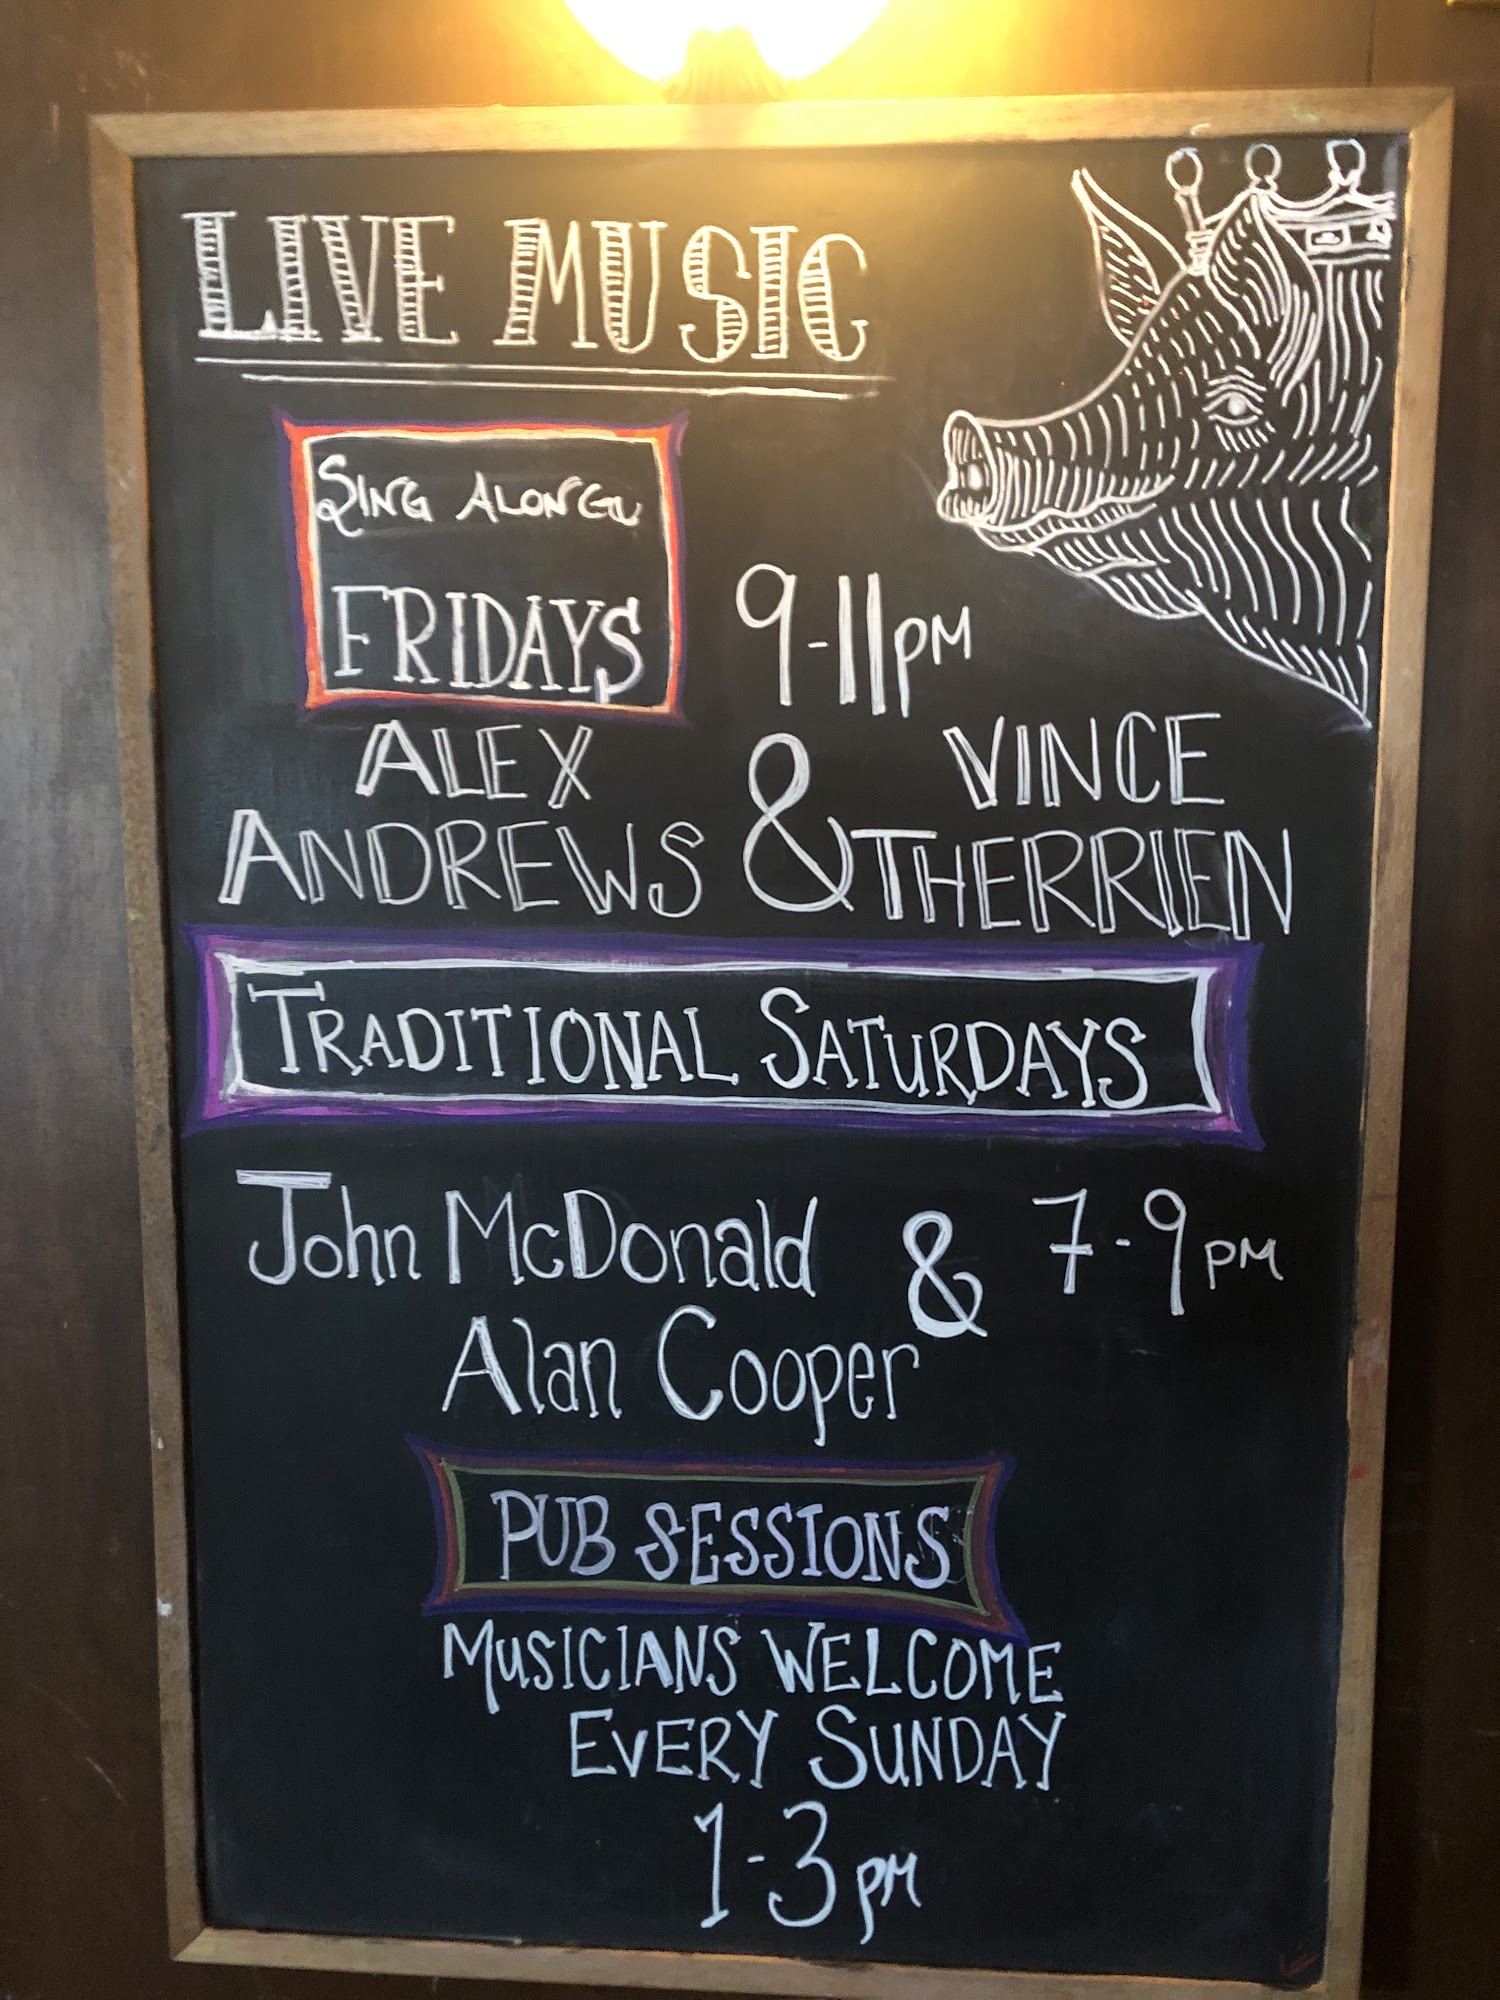 LIVE MUSIC
SING ALONG
FRIDAYS
9-11PM
ALEX
ANDREWS
&
VINCE
THERRIEN
TRADITIONAL SATURDAYS
John McDonald & 7-9PM
Alan Cooper
PUB SESSIONS
MUSICIANS WELCOME
EVERY SUNDAY
1-3PM